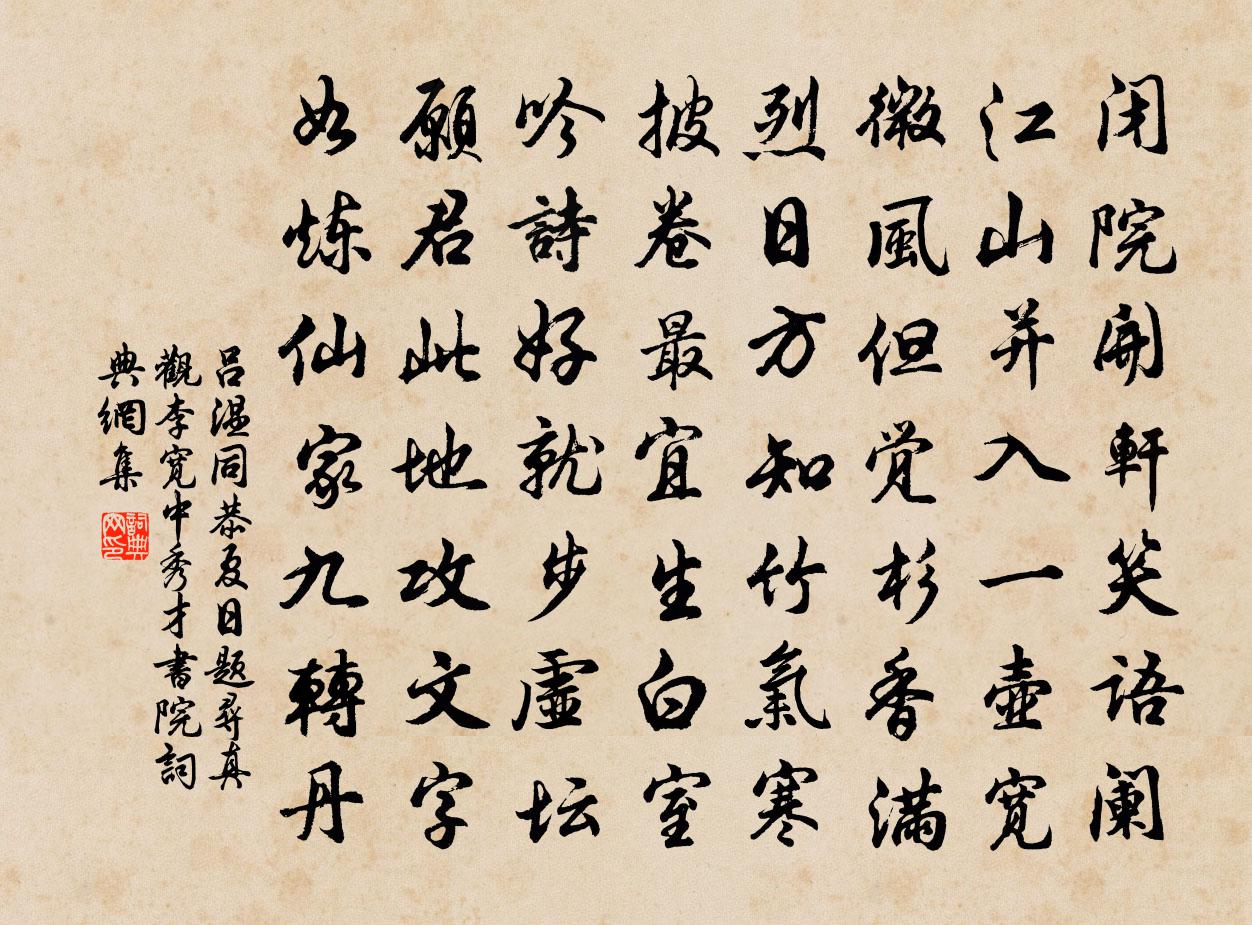 闭院開軒笑语阑
江山并入一壶寬
微風但觉杉香滿
烈日方知竹氣寒
披卷最宜生白室
吟詩好就步虚坛
願君此地攻文字
如炼仙家九轉丹
吕温同恭夏日题尋真
觀李寬中秀才書院詞
典網集
詞典网印